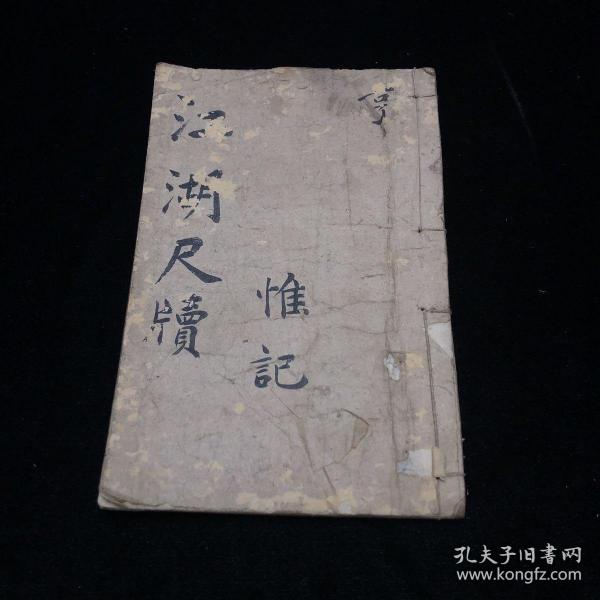 亨
江湖尺牘
惟記
孔夫子旧書网
www.kongfz.com